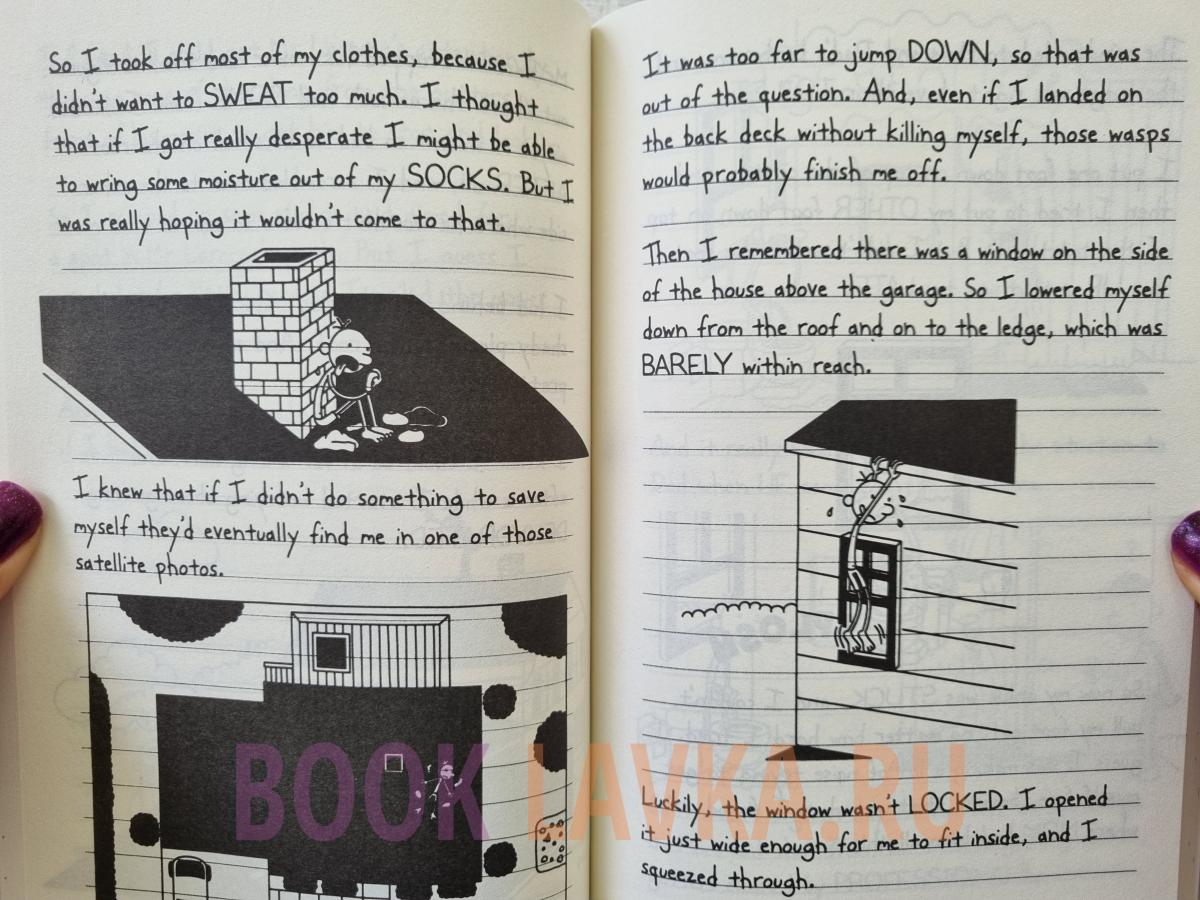 So I took off most of my clothes, because I
didn't want to SWEAT too much. I thought
that if I got really desperate I might be able
to wring some moisture out of my SOCKS. But I
was really hoping it wouldn't come to that.
I knew that if I didn't do something to save
myself they'd eventually find me in one of those
satellite photos.
It was too far to jump DOWN, so that was
out of the question. And, even if I landed on
the back deck without killing myself, those wasps
would probably finish me off.
Then I remembered there was a window on the side
of the house above the garage. So I lowered myself
down from the roof and on to the ledge, which was
BARELY within reach.
Luckily, the window wasn't LOCKED. I opened
it just wide enough for me to fit inside, and I
squeezed through.
BOOK LAVKA.RU